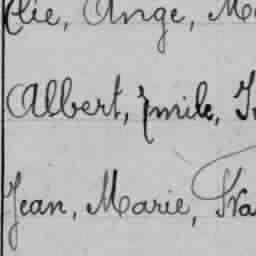 Elie, Ange, M
Albert, Emile, J
Jean, Marie, Fra